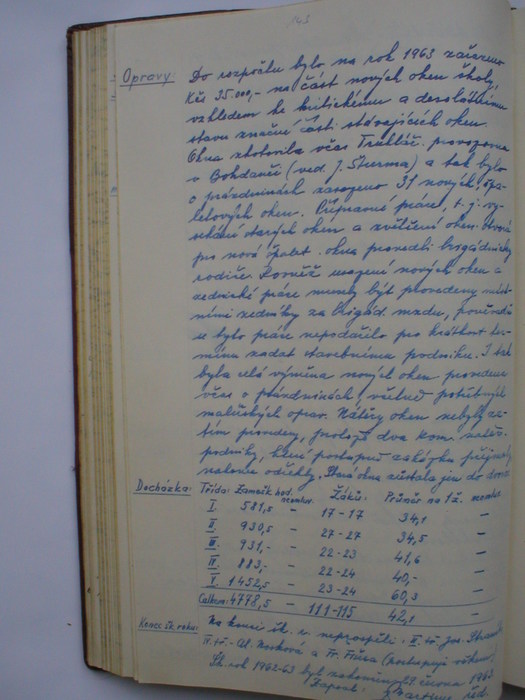 143
Opravy: Do rozpočtu bylo na rok 1963 zařazeno
Kčs 35.000,- na část nových oken školy,
vzhledem ke kritickému a desolátnímu
stavu značné části stávajících oken.
Okna zhotovila včas Truhlář. provozovna
v Bohdanči (ved. J. Šturma) a tak bylo
o prázdninách zasazeno 31 nových špa-
letových oken. Přípravné práce, t. j. vy-
sekání starých oken a zvětšení oken. otvorů
pro nová špalet. okna provedli brigádnicky
rodiče. Rovněž usazení nových oken a
zednické práce musely být provedeny
zedníky za brigád. mzdu, poněvadž
se bylo práce nepodařilo pro krátkost ter-
mínu zadat stavebnímu podniku. I tak
byla celá výměna nových oken provedena
včas o prázdninách, včetně potřebných
malířských oprav. Nátěry oken nebyly za-
tím provedeny, protože dva kom.
podniky, které postupně zakázku přijmuly
nakonec odřekly. okna zůstala jen do
Docházka: Třída: Zamešk. hod. nemluv. Žáků: Průměr na 1 ž. nemluv.
I. 581,5 - 17-17 34,1 -
II. 930,5 - 27-27 34,5 -
III. 931,- - 22-23 41,6 -
IV. 883,- - 22-24 40,- -
V. 1452,5 - 23-24 60,3 -
Celkem: 4778,5 - 111-115 42,1 -
Konec šk. roku: Na konci šk. r. neprospěli: II. tř. Jos.
IV. tř. - Al. Nosková a Fr. Fišra (postupují věkem)
Šk. rok 1962-63 byl zakončen 29. června 1963
Zapsal: řed.